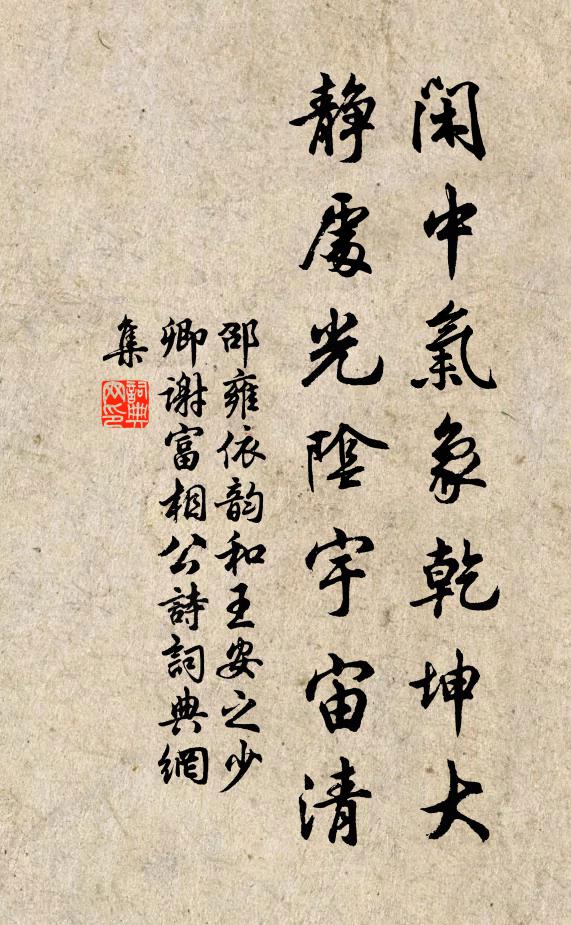 閑中氣象乾坤大
靜處光陰宇宙清
邵雍依韵和王安之少
卿谢富相公詩詞典網
集
詞典
网印